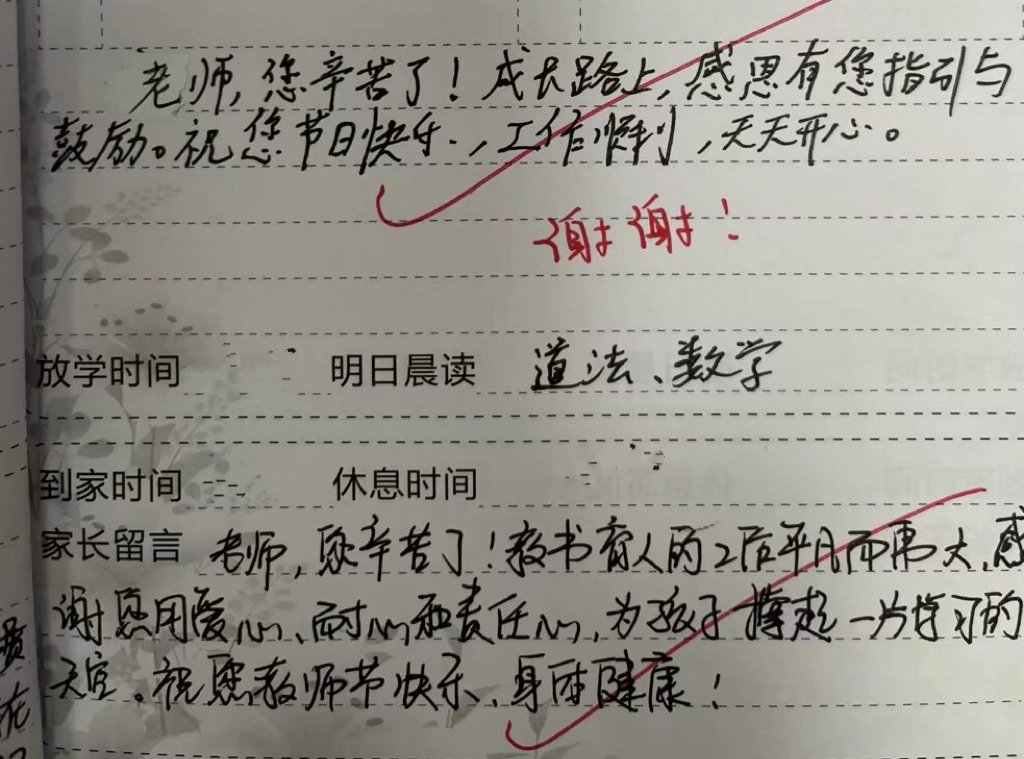 老师,您辛苦了!成长路上,感恩有您指引与
鼓励。祝您节日快乐,工作顺利,天天开心。
谢谢!
放学时间 明日晨读 道法、数学
到家时间 休息时间
家长留言 老师,您辛苦了!教书育人的工作平凡而伟大,感
谢您用爱心、耐心和责任心,为孩子撑起一片学习的
天空。祝您教师节快乐、身体健康!